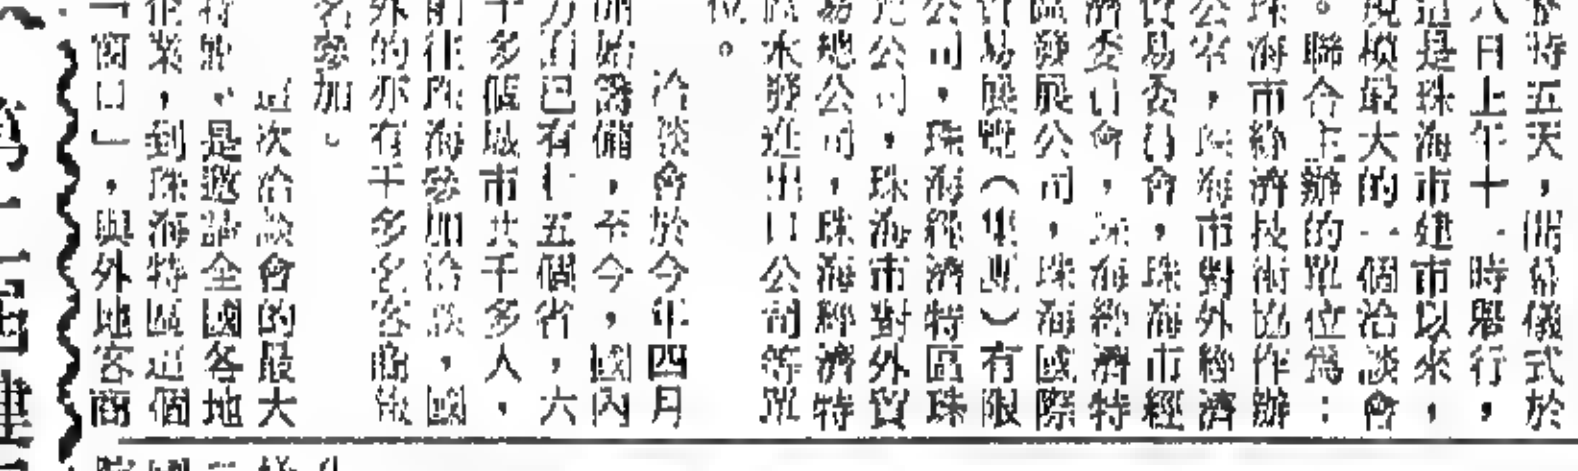 時五天，開幕儀式於
八日上午十一時舉行，
這是珠海市建市以來，
規模最大的一個洽談會
。聯合主辦的單位爲：
珠海市經濟技術協作辦
公室，珠海市對外經濟
貿易委員會，珠海市經
濟委員會，珠海經濟特
區發展公司，珠海國際
貿易展覽（集團）有限
公司，珠海經濟特區珠
光公司，珠海市對外貿
易總公司，珠海經濟特
區永發進出口公司等單
位。
洽談會於今年四月
開始籌備，至今，國內
方面已有七五個省，六
十多個城市共千多人，
前往珠海參加洽談，國
外的亦有千多名客商報
名參加。
這次洽談會的最大
特點，是邀請全國各地
企業，到珠海特區這個
「窗口」，與外地客商